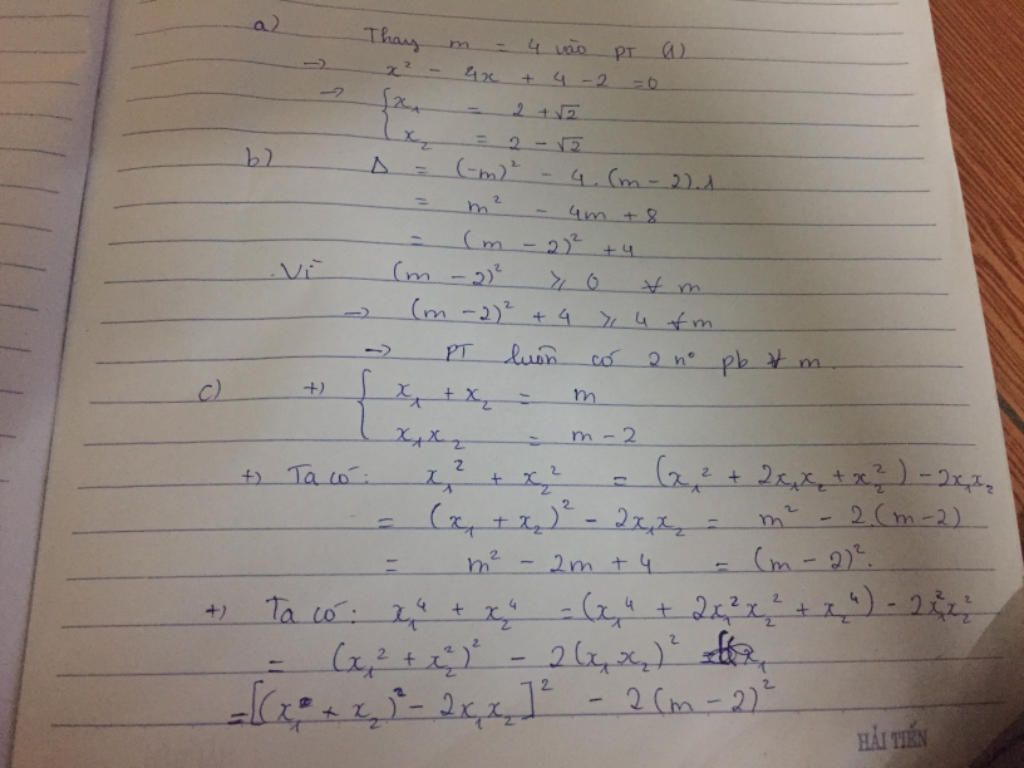 a) Thay m = 4 vào PT (1)
→ x² - 4x + 4 - 2 = 0
→ { x₁ = 2 + √2
x₂ = 2 - √2
b) Δ = (-m)² - 4.(m - 2).1
= m² - 4m + 8
= (m - 2)² + 4
Vì (m - 2)² ≥ 0 ∀ m
→ (m - 2)² + 4 ≥ 4 ∀ m
→ PT luôn có 2 nº pb ∀ m.
c) +) { x₁ + x₂ = m
x₁x₂ = m - 2
+) Ta có: x₁² + x₂² = (x₁² + 2x₁x₂ + x₂²) - 2x₁x₂
= (x₁ + x₂)² - 2x₁x₂ = m² - 2.(m - 2)
= m² - 2m + 4 = (m - 2)².
+) Ta có: x₁⁴ + x₂⁴ = (x₁⁴ + 2x₁²x₂² + x₂⁴) - 2x₁²x₂²
= (x₁² + x₂²)² - 2(x₁x₂)²
= [(x₁ + x₂)² - 2x₁x₂]² - 2(m - 2)²
HẢI TIẾN